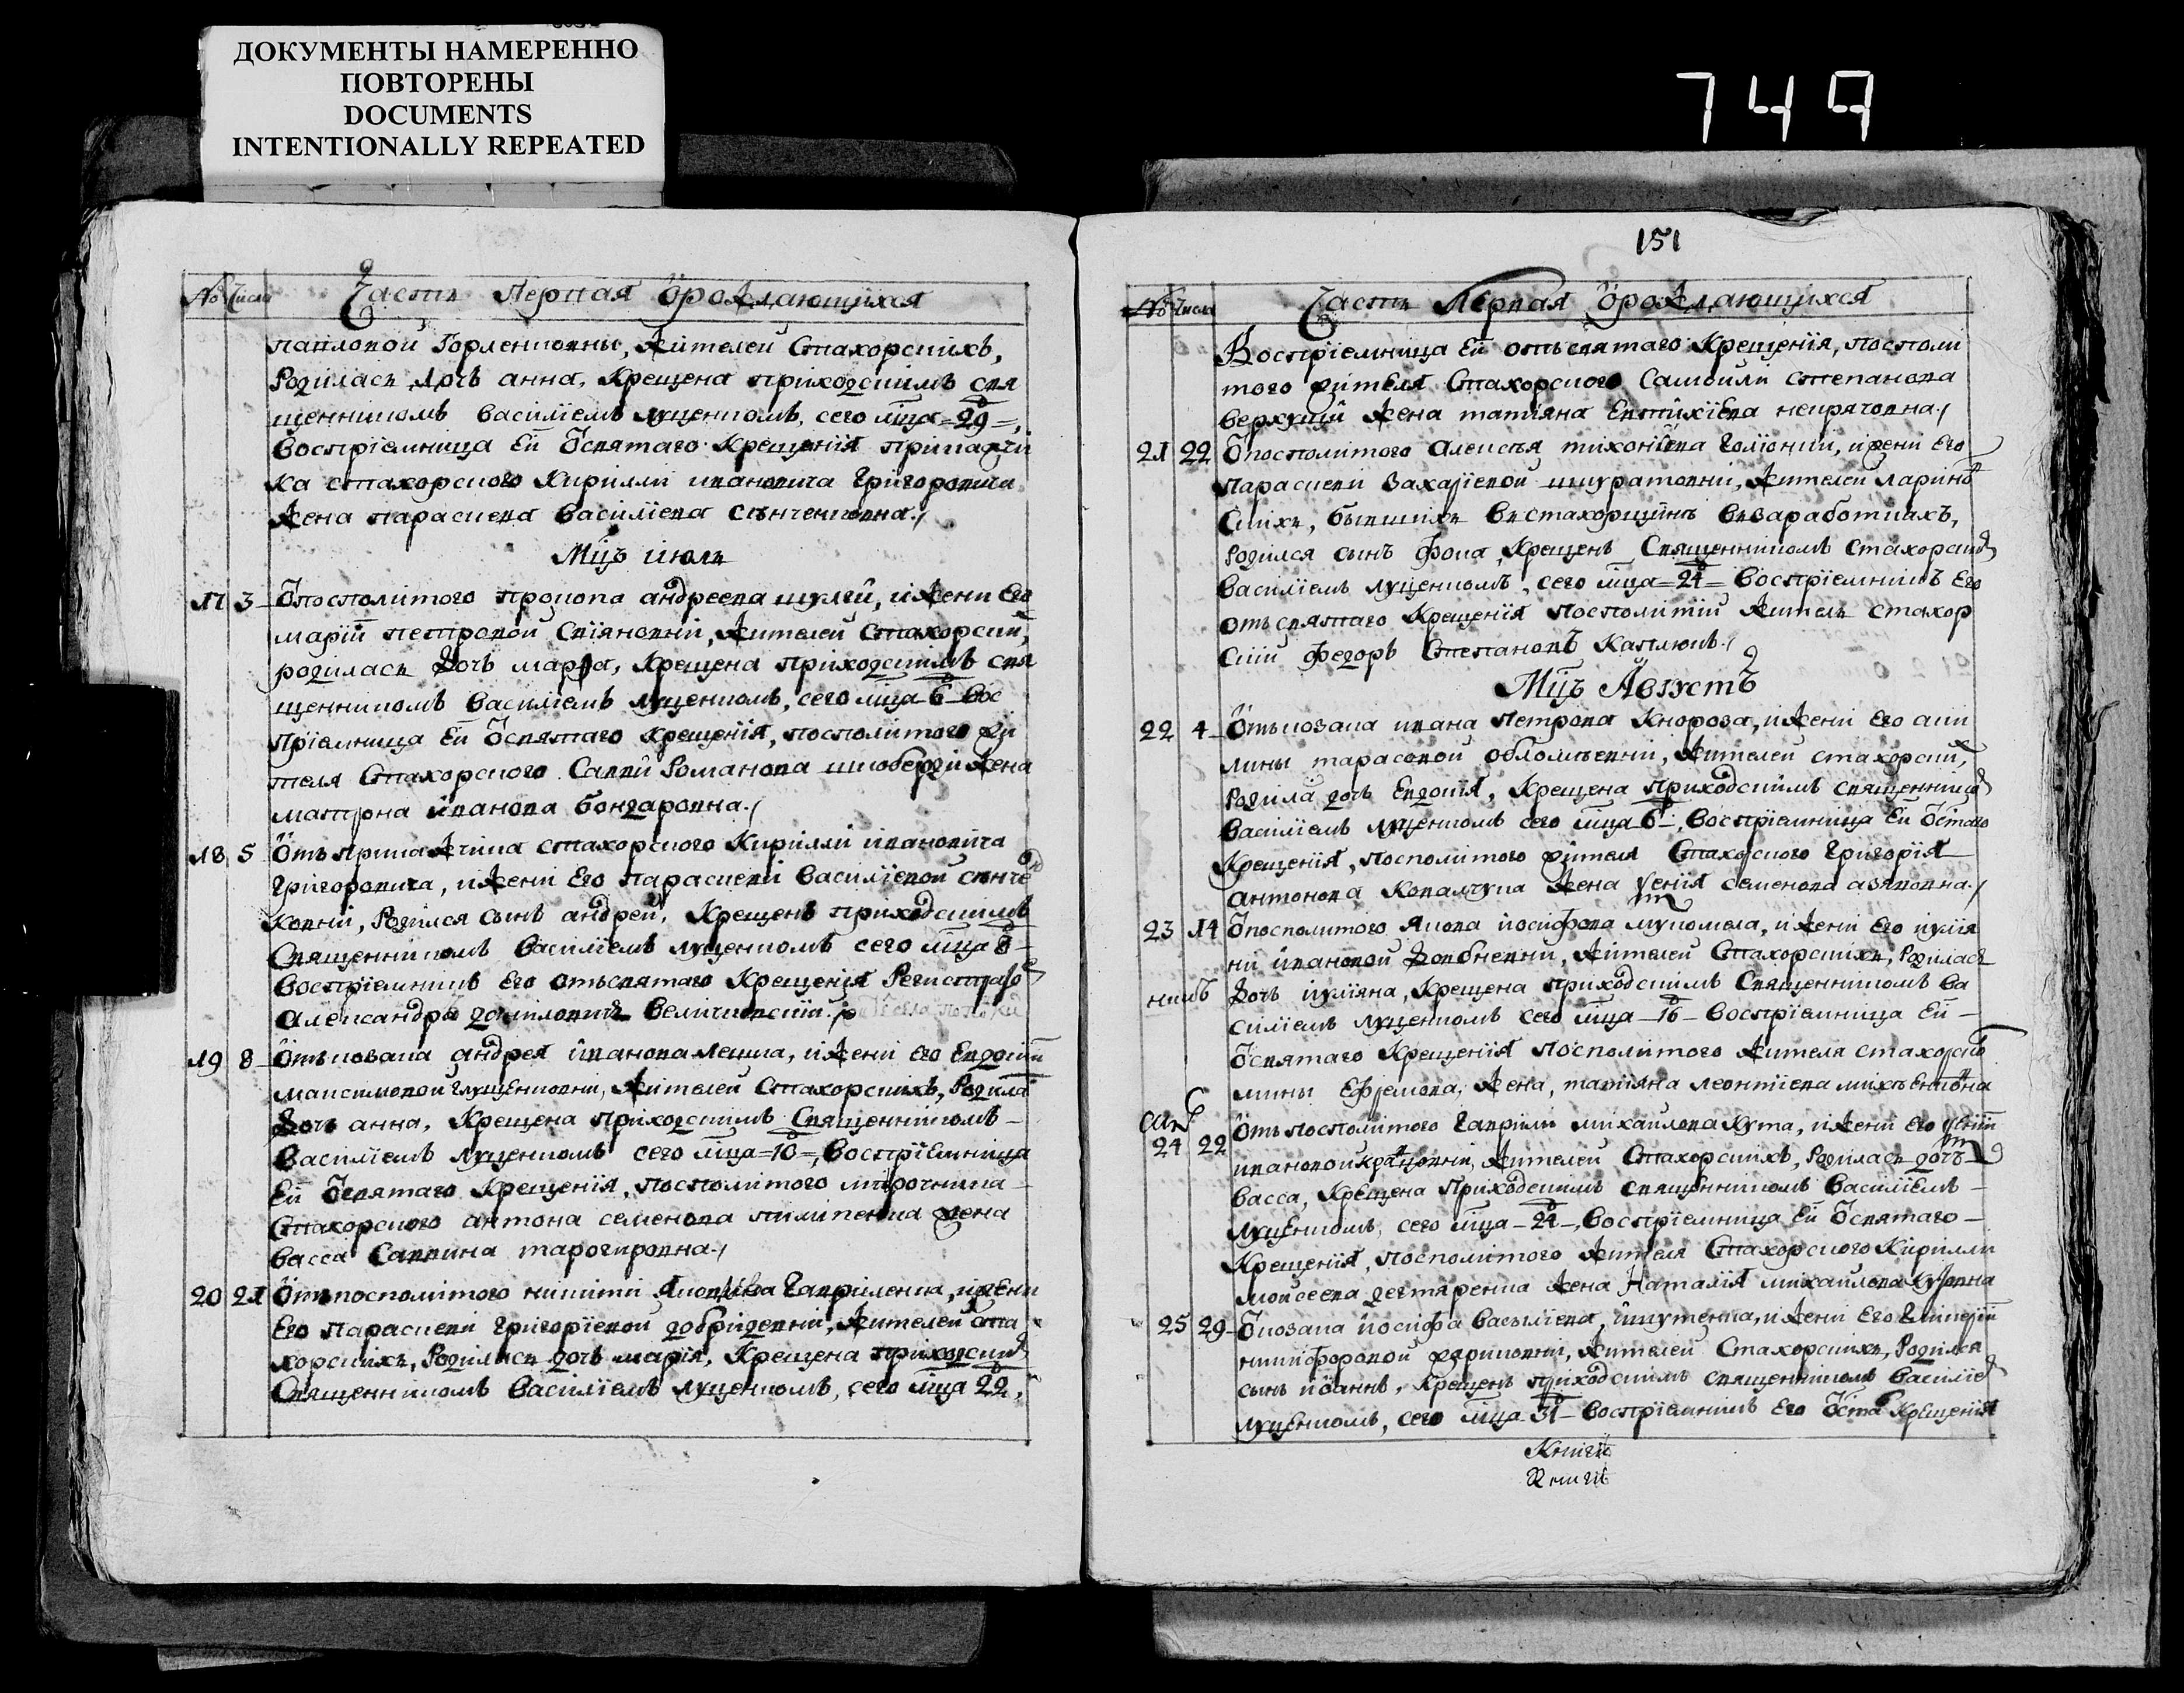 ДОКУМЕНТЫ НАМЕРЕННО
ПОВТОРЕНЫ
DOCUMENTS
INTENTIONALLY REPEATED
749
№ Числа Часть Первая ѽрождающихся
павловой Горленковны, жителей Стахорскихъ,
Родилась дочъ анна, Крещена приходскимъ свя
щенникомъ василіемъ луценкомъ, сего мца =29=,
воспріемница Ей ѿсвятаго Крещенія прикажчи
ка стахорского Кирилли ивановича Григоровича
жена параскева василіева
Мцъ июль
17 3 Ѿпосполитого прокопа андреева шулги, и жени Его
маріи петровой жителей Стахорски,
родилась дочъ марфа, Крещена приходскимъ свя
щенникомъ василіемъ луценкомъ, сего мца 6 вос
пріемница Ей ѿсвятаго крещенія, посполитого жи
теля Стахорского Савви Романова жена
матрона иванова бондаровна
18 5 Ѿтъ прикажчика стахорского Кирилли ивановича
григоровича, и жени Его параскеви василіевой сѣнче
ковни, Родился сынъ андрей, Крещенъ приходскимъ
Священникомъ василіемъ луценкомъ сего мца 8
воспріемникъ Его отъ святаго Крещенія Регистрато
Александръ даниловичъ величковскій
19 8 Ѿтъ козака андрея иванова лешка, и жени его Евдокіи
максимовой глущенковни, жителей Стахорскихъ, Родила
дочъ анна, Крещена приходскимъ Священникомъ
василіемъ луценкомъ сего мца =10=, воспріемница
Ей ѿсвятаго Крещенія, посполитого мирочника
Стахорского антона семенова пилипенка жена
васса Саввина
20 21 Ѿтъ посполитого никити Яковлева Гавриленка, и жени
Его Параскеви григоріевой жителей Ста
хорскихъ, Родилась дочъ марія, Крещена приходским
Священникомъ василіемъ луценкомъ, сего мца 22,
151
№ Числа Часть Первая ѽрождающихся
Воспріемница Ей отъ святаго Крещенія, посполи
того жителя Стахорского Самойли степанова
жена татіяна Евтихіева
21 22 Ѿпосполитого Алексѣя и жени Его
Параскеви Захаріевой жителей ларинов
скихъ, бывшихъ въ стахорщинѣ въ заработкахъ,
родился сынъ фока, Крещенъ Священникомъ стахорским
василіемъ луценкомъ, сего мца =24= воспріемникъ Его
отъ святаго Крещенія посполитій житель стахор
скій федоръ Степановъ Каплюкъ
Мцъ Августъ
22 4 Ѿтъ козака ивана Петрова Кнороза, и жени Его аки
лины тарасовой жителей стахорски,
Родила дочъ Евдокія, Крещена приходскимъ священнико
василіемъ луценкомъ сего мца 6, воспріемница Ей ѿстаго
Крещенія, посполитого жителя Стахорского Григорія
антонова Ковалчука жена ксенія семенова
23 14 Ѿпосполитого Якова иосифова мукомела, и жени Его иулія
ни ивановой жителей Стахорскихъ, Родилась
дочъ иуліяна, Крещена приходскимъ Священникомъ ва
силіемъ луценкомъ сего мца 16 воспріемница Ей
ѿсвятаго Крещенія посполитого жителя стахорско
мины Ефремова, жена, татіяна леонтіева
24 22 Ѿтъ посполитого гаврили михайлова Кута, и жени Его
ивановой жителей Стахорскихъ, Родилась дочъ
васса, Крещена приходскимъ священникомъ василіемъ
луценкомъ, сего мца 24, воспріемница Ей ѿсвятаго
Крещенія, посполитого жителя Стахорского Кирилли
мойсеева дегтяренка жена Наталія михайлова
25 29 Ѿкозака иосифа васыліева, и жени Его
никифоровой жителей Стахорскихъ, Родился
сынъ иоаннъ, Крещенъ приходскимъ священникомъ василіе
луценкомъ, сего мца 31 воспріемникъ Его ѿста Крещенія
Книги
Книги